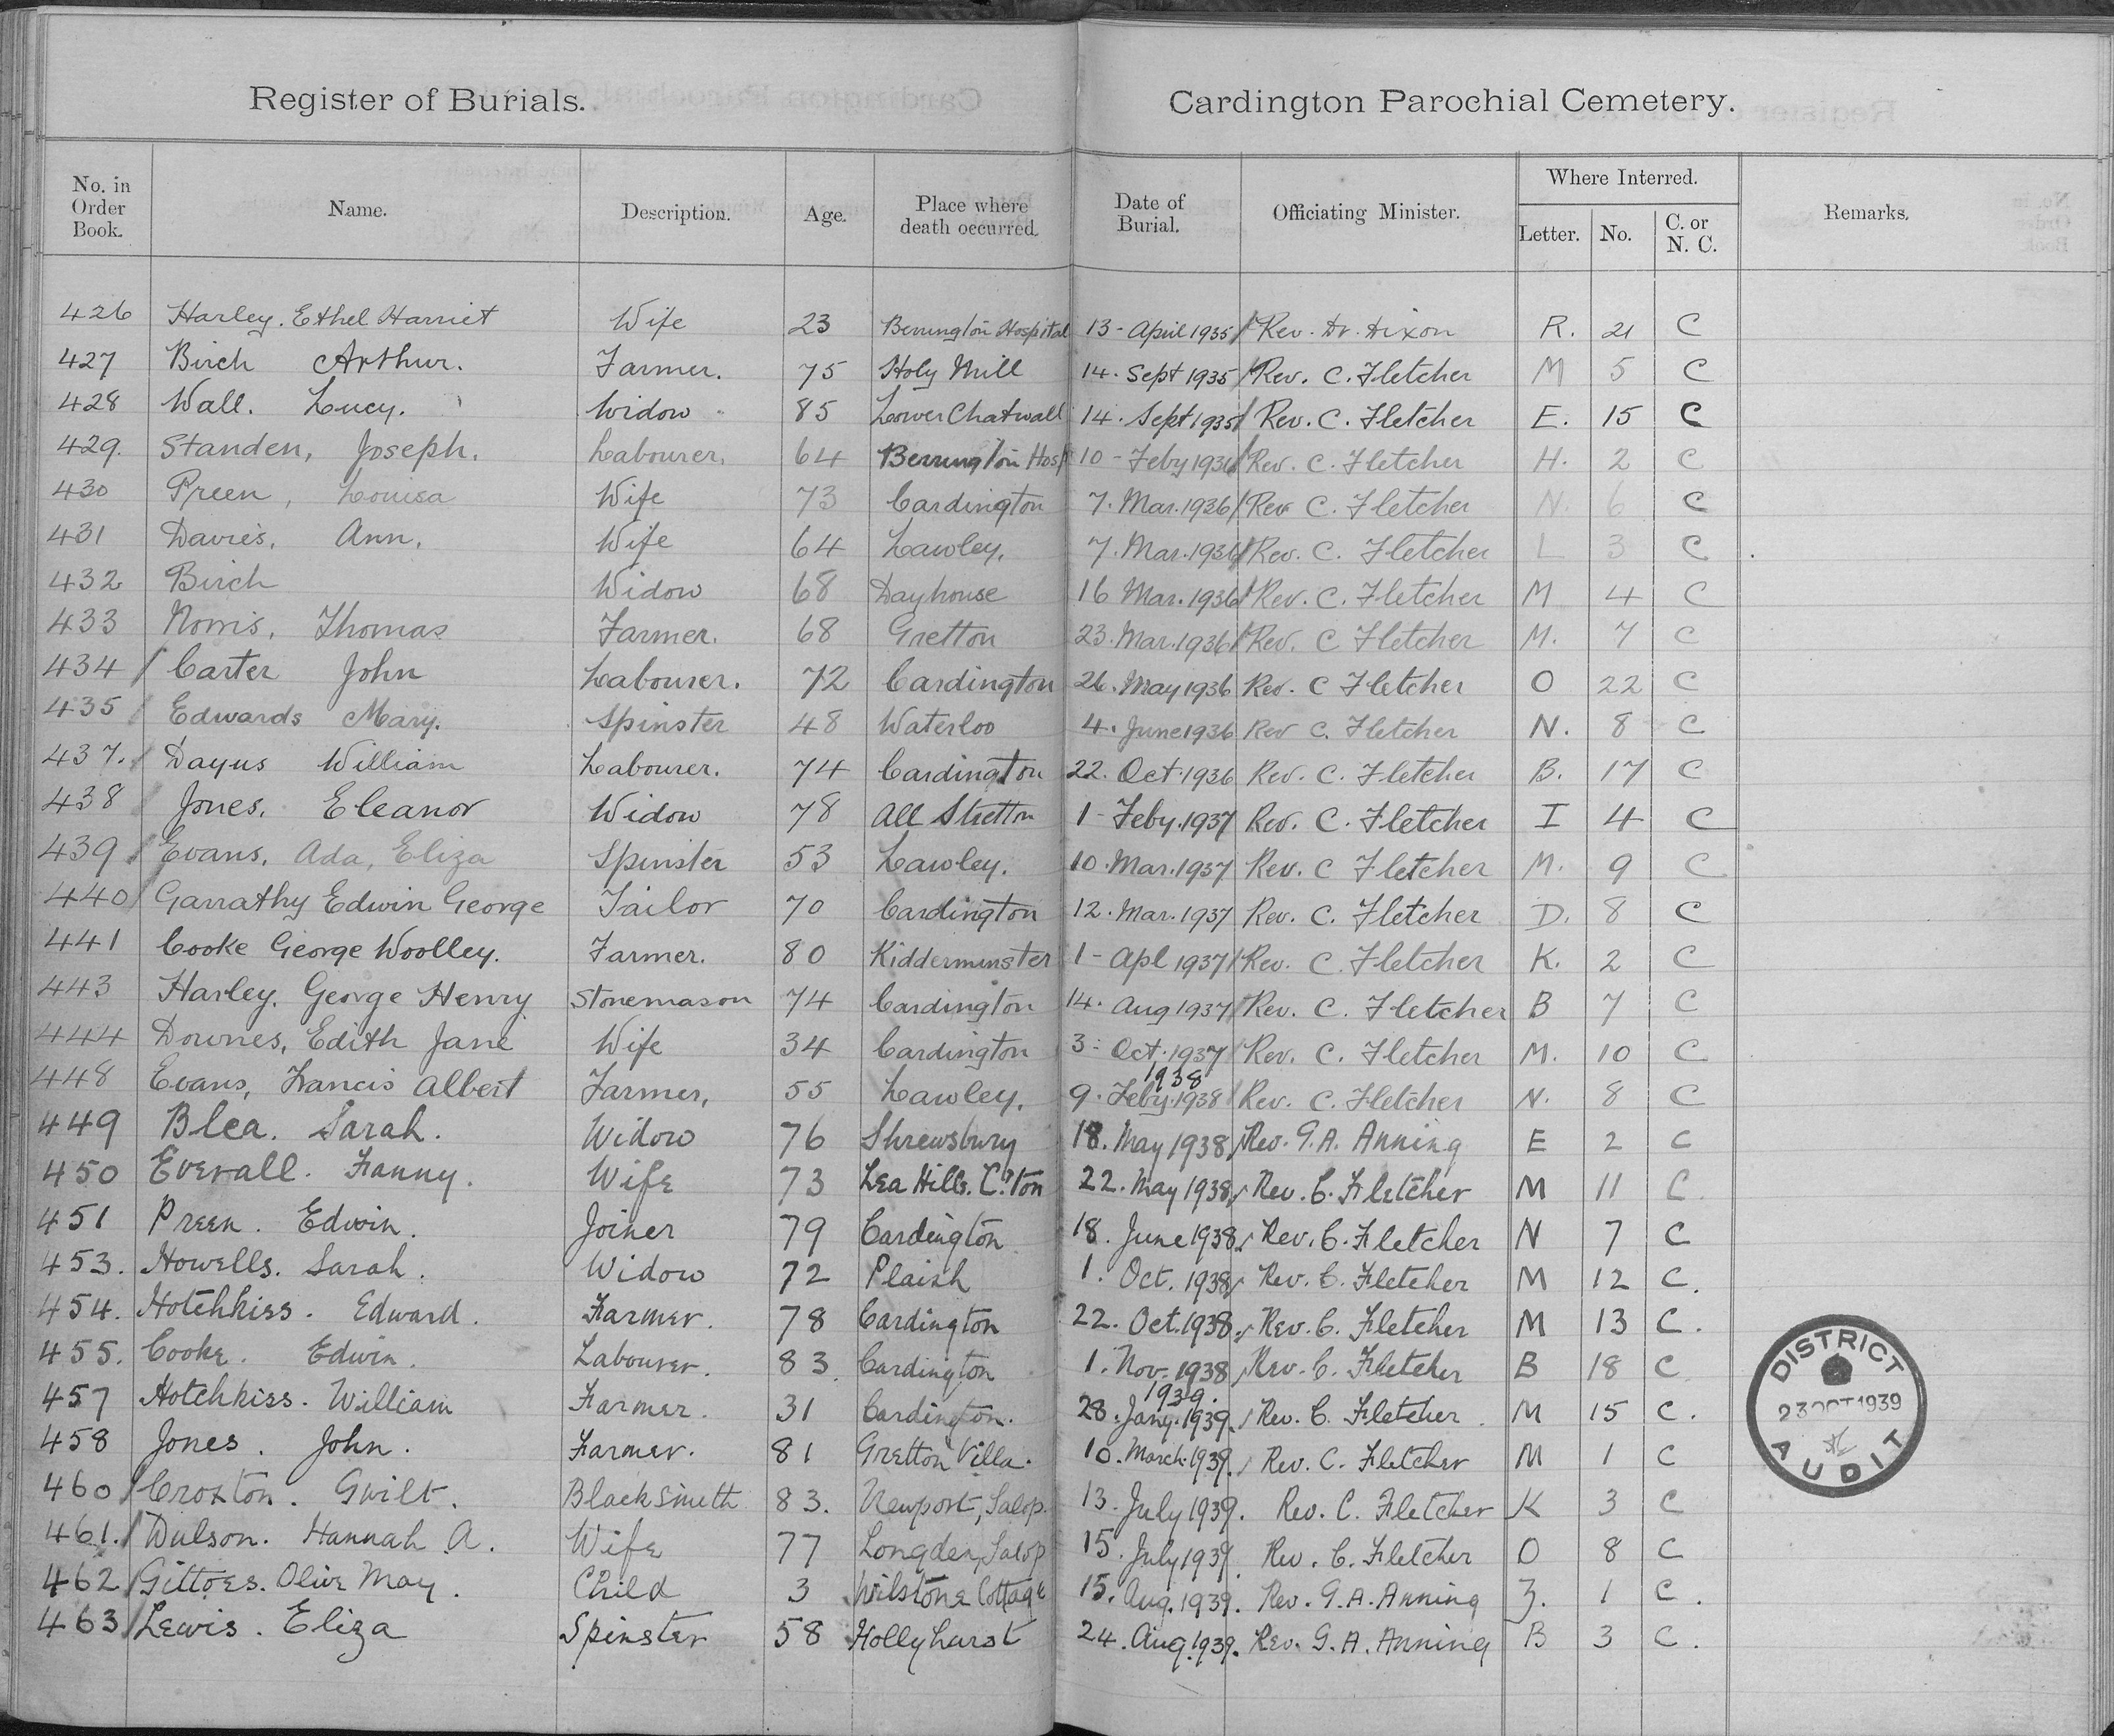 Register of Burials.
Cardington Parochial Cemetery.
No. in Order Book. Name. Description. Age. Place where death occurred. Date of Burial. Officiating Minister. Where Interred. Letter. No. C. or N. C. Remarks.
426 Harley. Ethel Harriet Wife 23 Berrington Hospital 13 - April 1935 / Rev. Dr. Dixon R. 21 C
427 Birch Arthur. Farmer. 75 Holy Mill 14. Sept 1935 / Rev. C. Fletcher M 5 C
428 Wall. Lucy. Widow 85 Lower Chatwall 14. Sept 1935 / Rev. C. Fletcher E. 15 C
429. Standen, Joseph. Labourer. 64 Berrington Hosp 10 - Feby 1936 / Rev. C. Fletcher H. 2 C
430 Preen, Louisa Wife 73 Cardington 7. Mar. 1936 / Rev C. Fletcher N. 6 C
431 Davies, Ann. Wife 64 Lawley. 7. Mar. 1936 / Rev. C. Fletcher L 3 C
432 Birch Widow 68 Dayhouse 16 Mar. 1936 / Rev. C. Fletcher M 4 C
433 Norris, Thomas Farmer. 68 Gretton 23. Mar. 1936 / Rev. C Fletcher M. 7 C
434 / Carter John Labourer. 72 Cardington 26. May 1936 Rev. C Fletcher O 22 C
435 / Edwards Mary. Spinster 48 Waterloo 4. June 1936 Rev C. Fletcher N. 8 C
437. / Dayus William Labourer. 74 Cardington 22. Oct. 1936 Rev. C. Fletcher B. 17 C
438 / Jones. Eleanor Widow 78 All Stretton 1 - Feby. 1937 Rev. C. Fletcher I 4 C
439 / Evans, Ada, Eliza Spinster 53 Lawley. 10. Mar. 1937 Rev. C Fletcher M. 9 C
440 / Garrathy Edwin George Tailor 70 Cardington 12. Mar. 1937 Rev. C. Fletcher D. 8 C
441 Cooke George Woolley. Farmer. 80 Kidderminster 1 - Apl 1937 / Rev. C. Fletcher K. 2 C
443 Harley. George Henry Stonemason 74 Cardington 14. Aug 1937 / Rev. C. Fletcher B 7 C
444 Downes, Edith Jane Wife 34 Cardington 3 - Oct. 1937 / Rev. C. Fletcher M. 10 C
1938
448 Evans, Francis Albert Farmer, 55 Lawley. 9. Feby. 1938 / Rev. C. Fletcher N. 8 C
449 Blea. Sarah. Widow 76 Shrewsbury 18. May 1938 / Rev. G. A. Anning E 2 C
450 Everall. Fanny. Wife 73 Lea Hills. C.ton 22. May 1938 / Rev. C. Fletcher M 11 C.
451 Preen. Edwin. Joiner 79 Cardington 18. June 1938 / Rev. C. Fletcher N 7 C
453. Howells. Sarah. Widow 72 Plaish 1. Oct. 1938 / Rev. C. Fletcher M 12 C.
454. Hotchkiss. Edward. Farmer. 78 Cardington 22. Oct. 1938 / Rev. C. Fletcher M 13 C.
455. Cooke. Edwin. Labourer. 83. Cardington 1. Nov. 1938 / Rev. C. Fletcher B 18 C
1939.
457 Hotchkiss. William Farmer. 31 Cardington. 28. Jany. 1939. / Rev. C. Fletcher. M 15 C.
458 Jones. John. Farmer. 81 Gretton Villa. 10. March. 1939. / Rev. C. Fletcher M 1 C
460 / Croxton. Gwilt. Blacksmith 83. Newport, Salop. 13. July 1939. Rev. C. Fletcher K 3 C
461. / Dulson. Hannah A. Wife 77 Longden, Salop 15. July 1939. Rev. C. Fletcher O 8 C
462 / Gittoes. Olive May. Child 3 Wilstone Cottage 15. Aug. 1939. Rev. G. A. Anning Z. 1 C.
463 / Lewis. Eliza Spinster 58 Hollyhurst 24. Aug. 1939. Rev. G. A. Anning B 3 C.
DISTRICT
23 OCT 1939
AUDIT